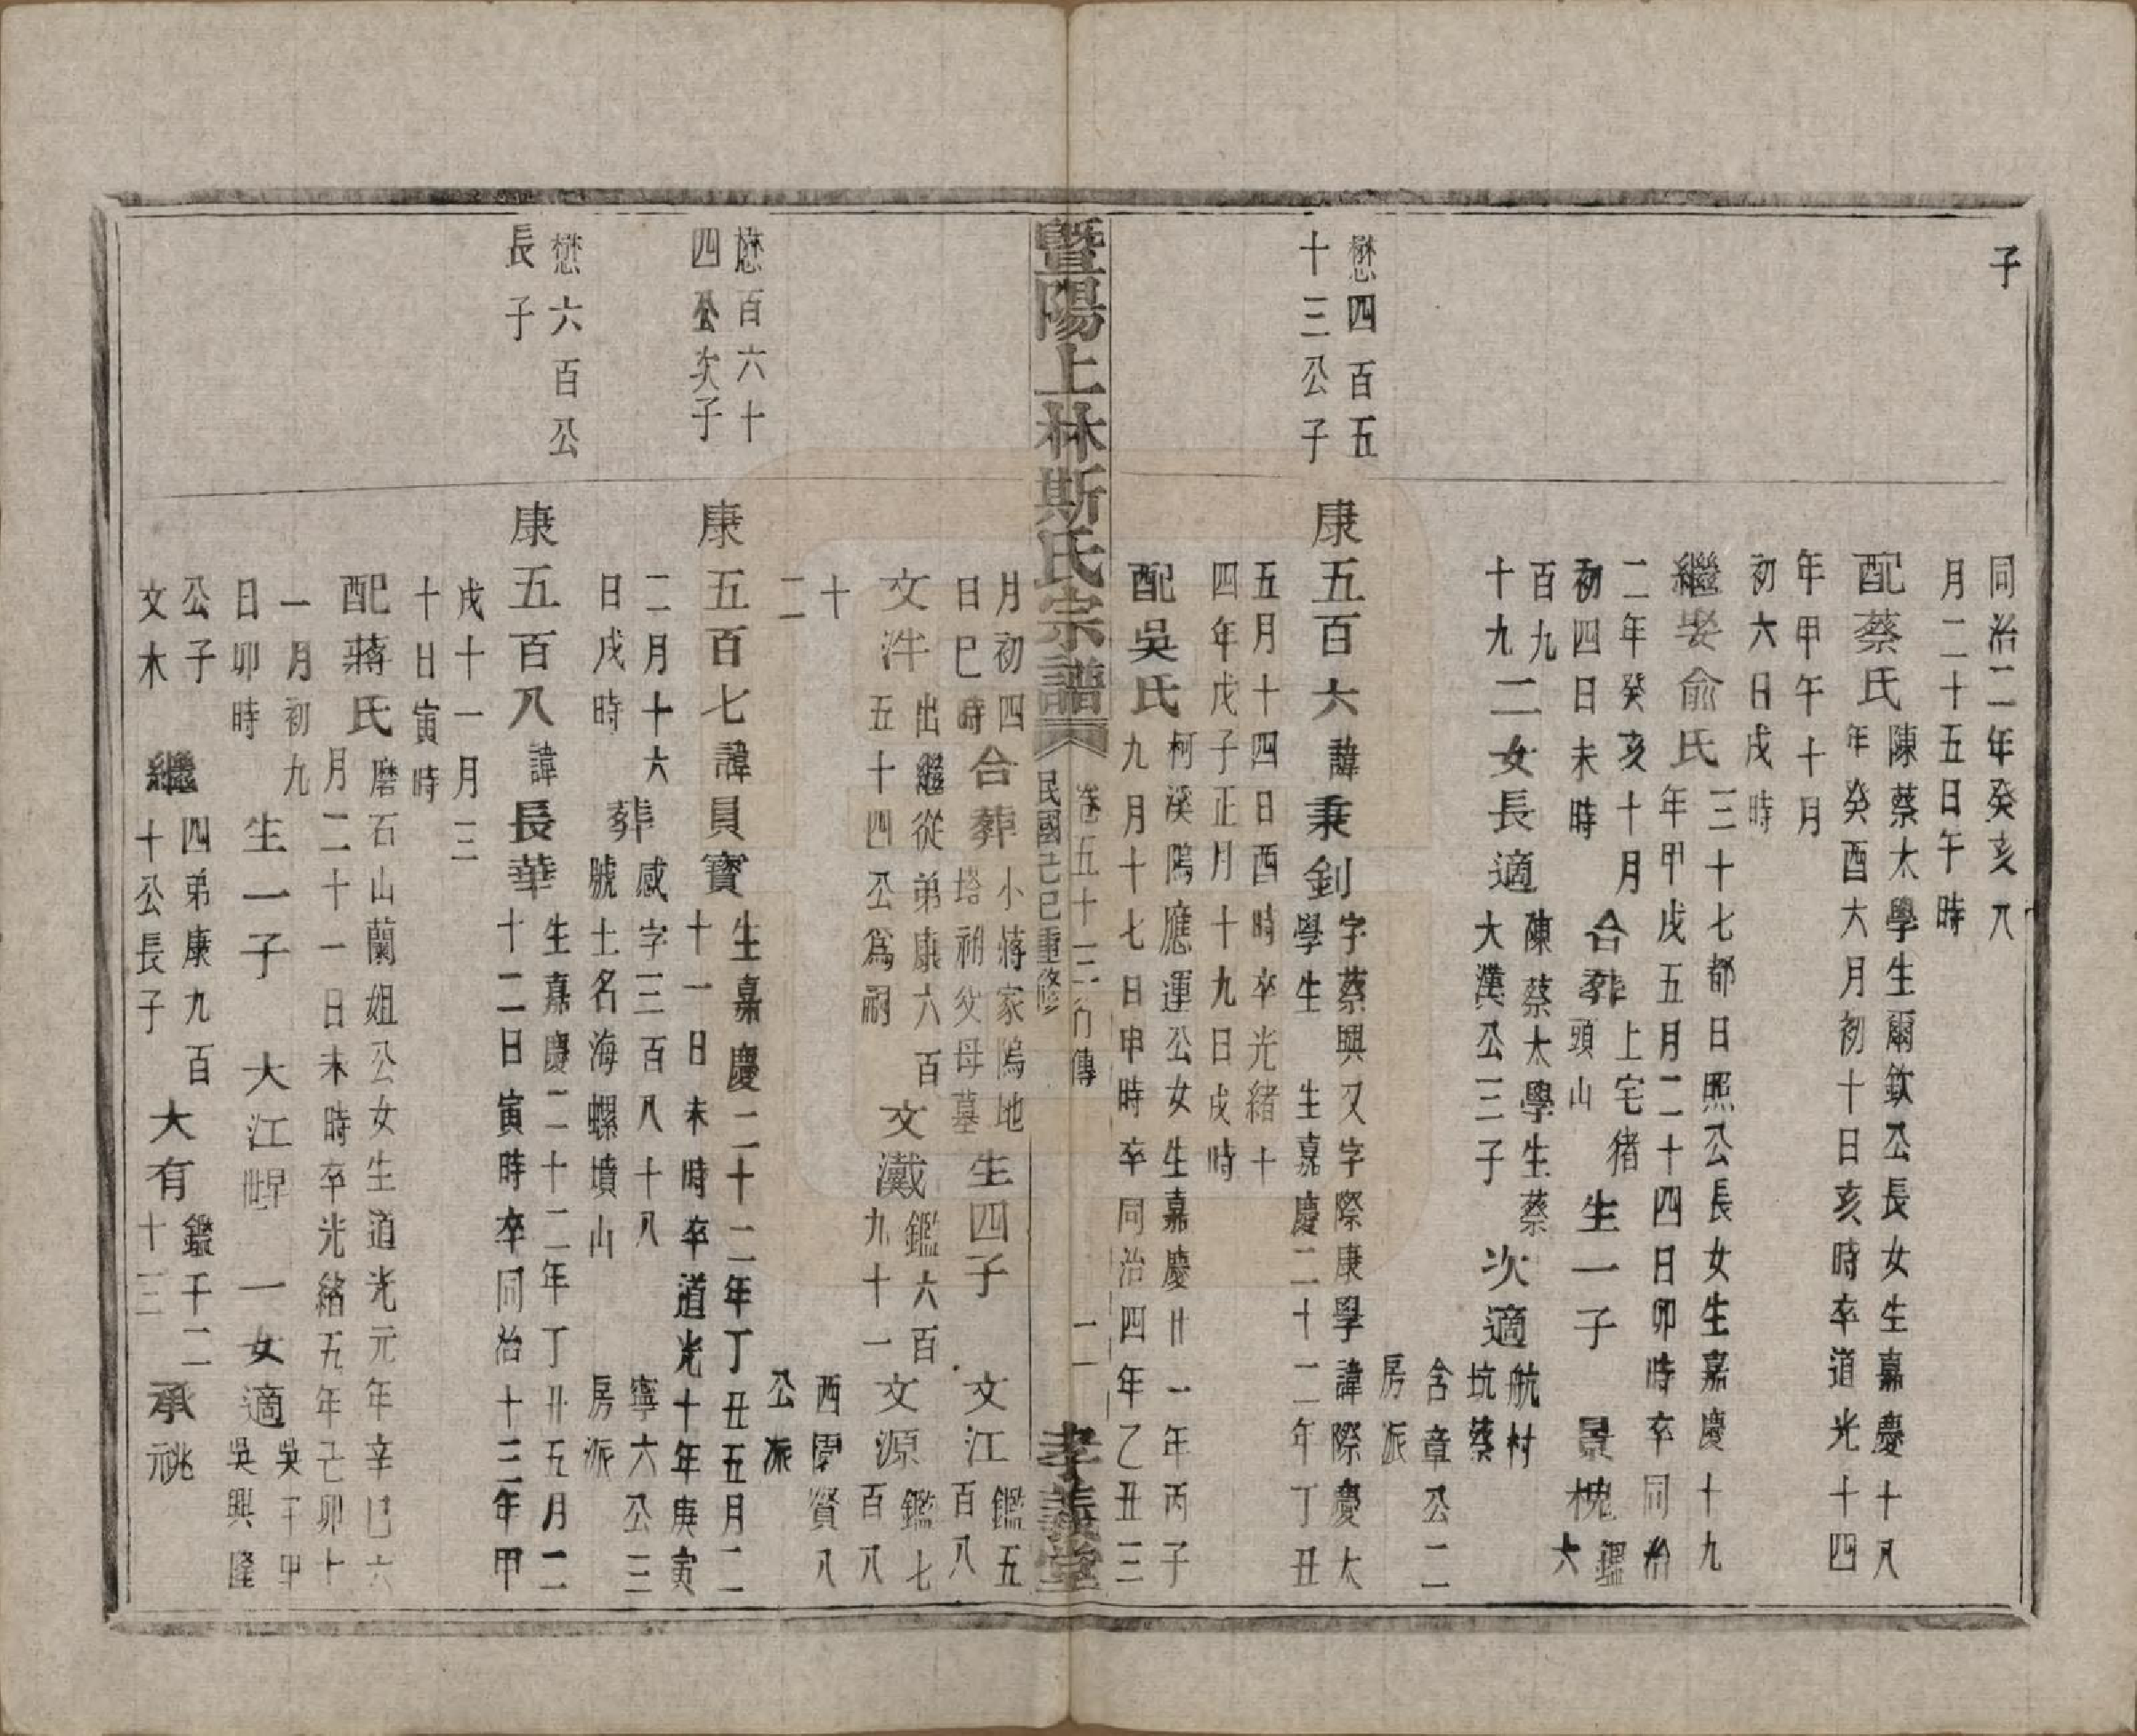 子
同治二年癸亥八
月二十五日午時
配蔡氏
陳蔡太學生爾欽公長女生嘉慶十八
年癸酉六月初十日亥時卒道光十四
年甲午十月
初六日戌時
繼娶俞氏
三十七都日照公長女生嘉慶十九
年甲戌五月二十四日卯時卒同治
二年癸亥十月
初四日未時
合葬
上宅猪
頭山
生一子
景槐
鑑六
百九
十九
二女長適
陳蔡太學生蔡
大漢公三子
次適
航村
坑蔡
含章公二
房派
懋四百五
十三公子
康五百六諱秉釗
字蔡興又字際康學諱際慶大
學生 生嘉慶二十二年丁丑
五月十四日酉時卒光緒十
四年戊子正月十九日戌時
配吳氏
柯溪隖應運公女生嘉慶廿一年丙子
九月十七日申時卒同治四年乙丑三
暨陽上林斯氏宗譜
卷五十三 行傳
民國己巳重修
二
孝義堂
月初四
日巳時
合葬
小蔣家隖地
塔祔父母墓
生四子
文江
鑑五
百八
文汼
出繼從弟康六百
五十四公為嗣
文瀻
鑑六百
九十一
文源
鑑七
百八
十
二
西賢八
公派
懋百六十
四公次子
康五百七諱員寶
生嘉慶二十二年丁丑五月二
十一日未時卒道光十年庚寅
二月十六
日戌時
葬
咸字三百八十八
號土名海螺墳山
寧六公三
房派
懋六百公
長子
康五百八諱長華
生嘉慶二十二年丁丑五月二
十二日寅時卒同治十三年甲
戌十一月三
十日寅時
配蔣氏
磨石山蘭姐公女生道光元年辛巳六
月二十一日未時卒光緒五年己卯十
一月初九
日卯時
生一子 大江 一女適
吳干甲
吳興隆
公子
文木
繼
四弟康九百
十公長子
大有
鑑千二
十三
承祧